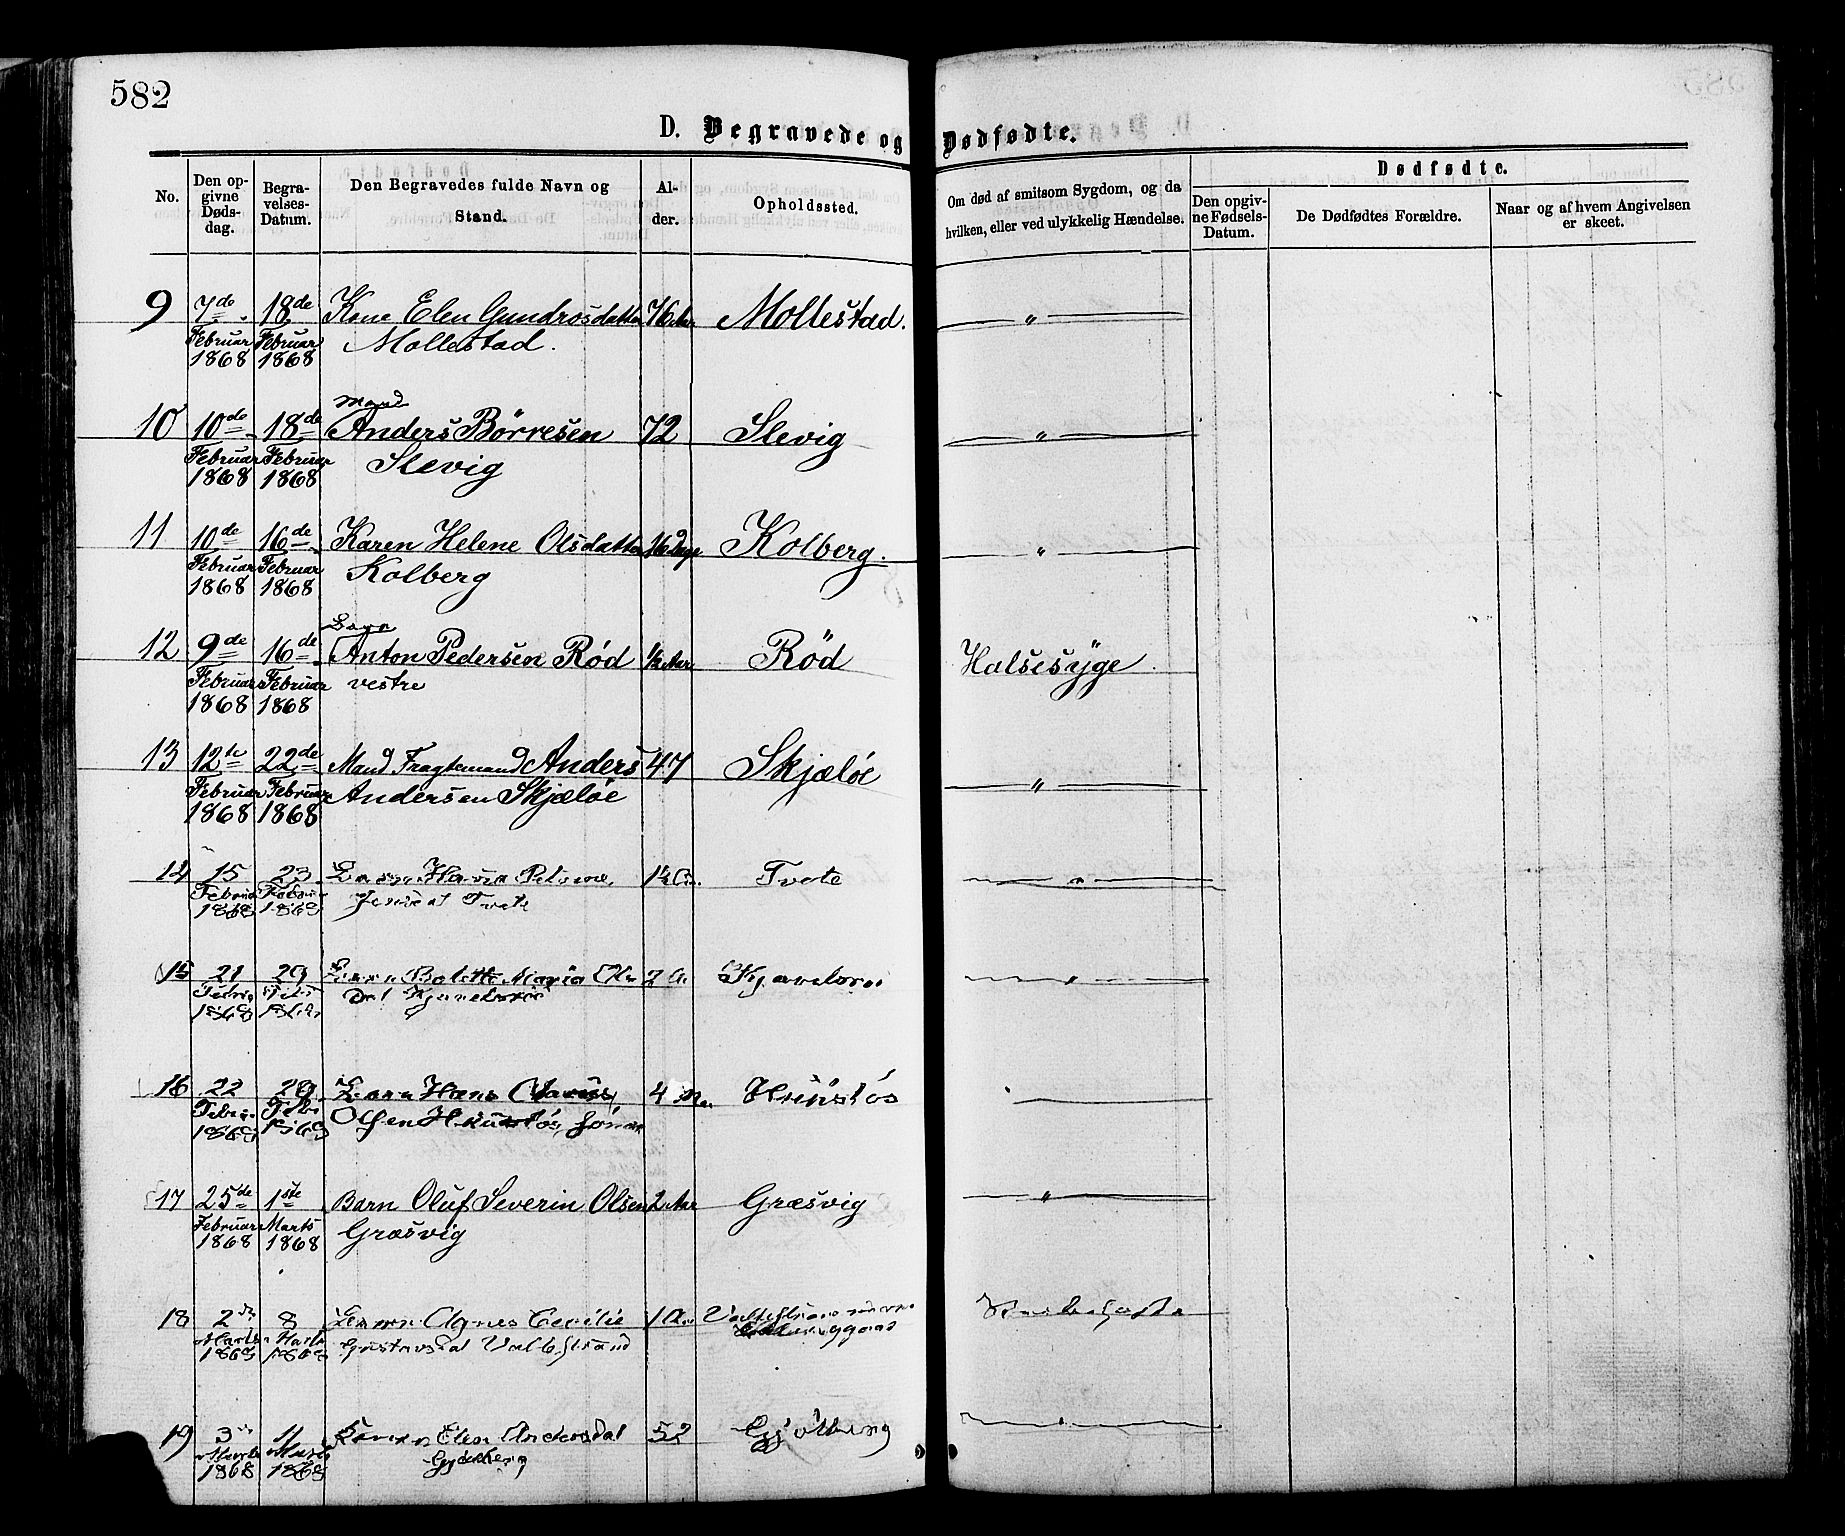 582
D. Begravede og Dødfødte.
No.
Den opgivne Dødsdag.
Begravelses-Datum.
Den Begravedes fulde Navn og Stand.
Alder.
Opholdssted.
Om død af smitsom Sygdom, og da hvilken, eller ved ulykkelig Hændelse.
Dødfødte.
Den opgivne Fødsels-Datum.
De Dødfødtes Forældre.
Naar og af hvem Angivelsen er skeet.
9 7de 18de Kone Elen Gundrosdatter 76 Aar Mollestad. "
Februar Februar Mollestad.
1868 1868
Mand
10 10de 18de Anders Börresen 72 Slevig "
Februar Februar Slevig
1868 1868
11 10de 16de Karen Helene Olsdatter 16 Dage Kolberg. "
Februar Februar Kolberg
1868 1868
Barn
12 9de 16de Anton Pedersen Rød ½ Aar Rød Halsesÿge.
Februar Februar vestre
1868 1868
13 12te 22de Mand Fragtemand Anders 47 Skjæløe "
Februar Februar Andersen Skjæløe
1868 1868
14 15 23 Barn Tvete "
Februar Februar Tvete
1868 1868
15 21 29 Barn Maria 2 "
1868 1868
16 22 29 Barn Hans 4
Olsen
1868 1868
17 25de 1ste Barn Oluf Severin Olsen 2 Aar Græsvig "
Februar Marts Græsvig
1868 1868
18 2den 8 Barn Agnes Cecilie 1
Marts Marts Gustavsdat
1868 1868
19 3 11 Elen Andersdat 52 "
Marts Marts
1868 1868